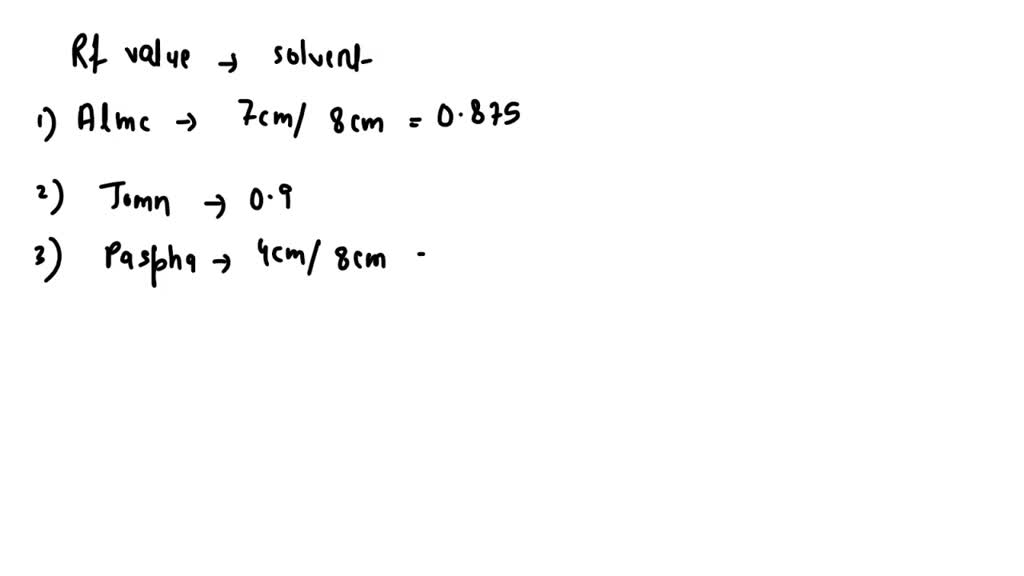 Rf value → solvent
1) Almc → 7cm/ 8cm = 0.875
2) Tomn → 0.9
3) Paspha → 4cm/ 8cm -